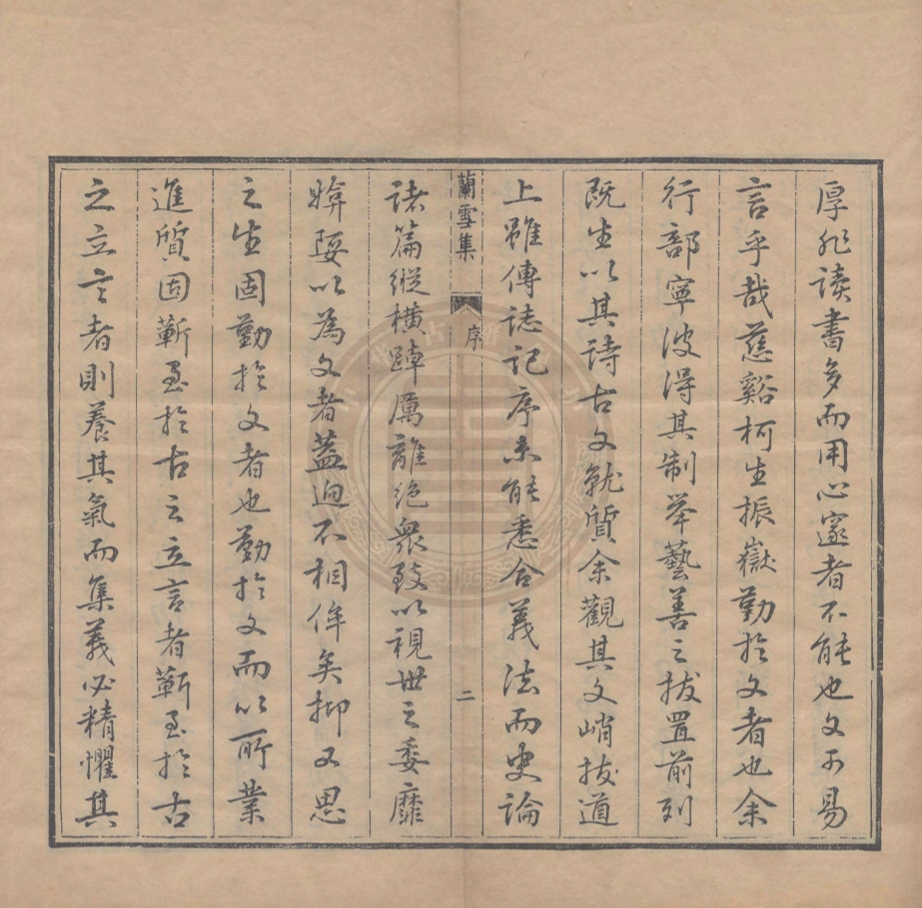 厚非读書多而用心邃者不能也文可易
言乎哉慈谿柯生振嶽勤於文者也余
行部寧波得其制举藝善之拔置前列
既生以其詩古文就質余觀其文峭拔道
上雖傳誌記序未能悉合義法而史論
蘭雪集 序 二
諸篇縱橫踔厲離絶衆致以視世之委靡
媕娿以為文者蓋迥不相侔矣抑又思
之生固勤於文者也勤於文而以所業
進質固蘄至於古之立言者蘄至於古
之立言者則養其氣而集義必精懼其